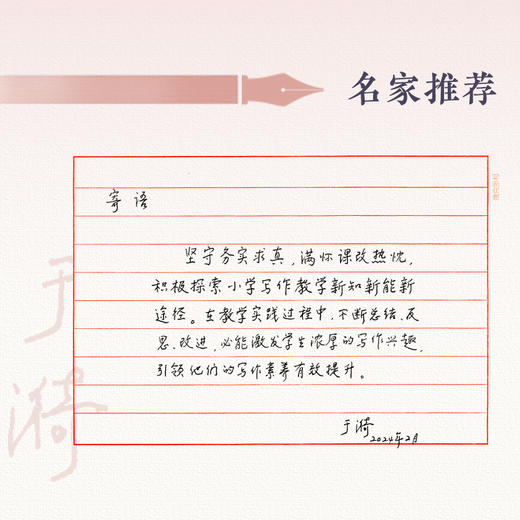 名家推荐
寄语
坚守务实求真，满怀课改热忱，
积极探索小学写作教学新知新能新
途径。在教学实践过程中，不断总结、反
思、改进，必能激发学生浓厚的写作兴趣，
引领他们的写作素养有效提升。
于漪
2024年2月
于漪